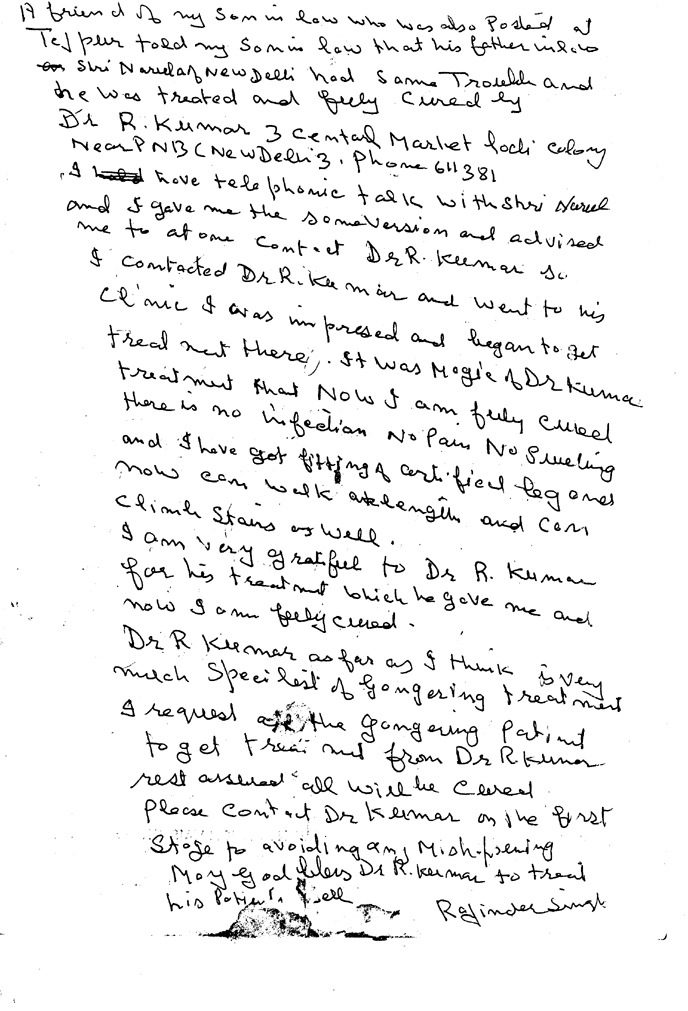 A friend of my Son in law who was also Posted at
Tejpur told my Son in law that his father inlaw
Shri Narula of New Delhi had Same Trouble and
he was treated and fully Cured by
Dr R. Kumar 3 Central Market lodi colony
Near PNB (New Delhi 3. Phone 611381
I have telephonic talk with Shri Narula
and I gave me the same Version and advised
me to at one Contact Dr R. Kumar so
I contacted Dr R. Kumar and went to his
Clinic I was impresed and began to get
treatment there. It was Magic of Dr Kumar
treatment that Now I am fully Cured
there is no infection No Pain No Sweling
and I have got fitting of artifical leg and
now can walk at length and Can
Climb Stairs as well.
I am very gratiful to Dr R. Kumar
for his treatment which he gave me and
now I am fully cured.
Dr R Kumar as far as I think is very
much Specilist of Gongering treatment
I request all the Gongering Patient
to get treatment from Dr R Kumar
rest assured all will be Cured
Please Contact Dr Kumar on the first
Stage to avoiding any Mishppening
May God bless Dr R. Kumar to treat
his Patient well
Rajinder Singh